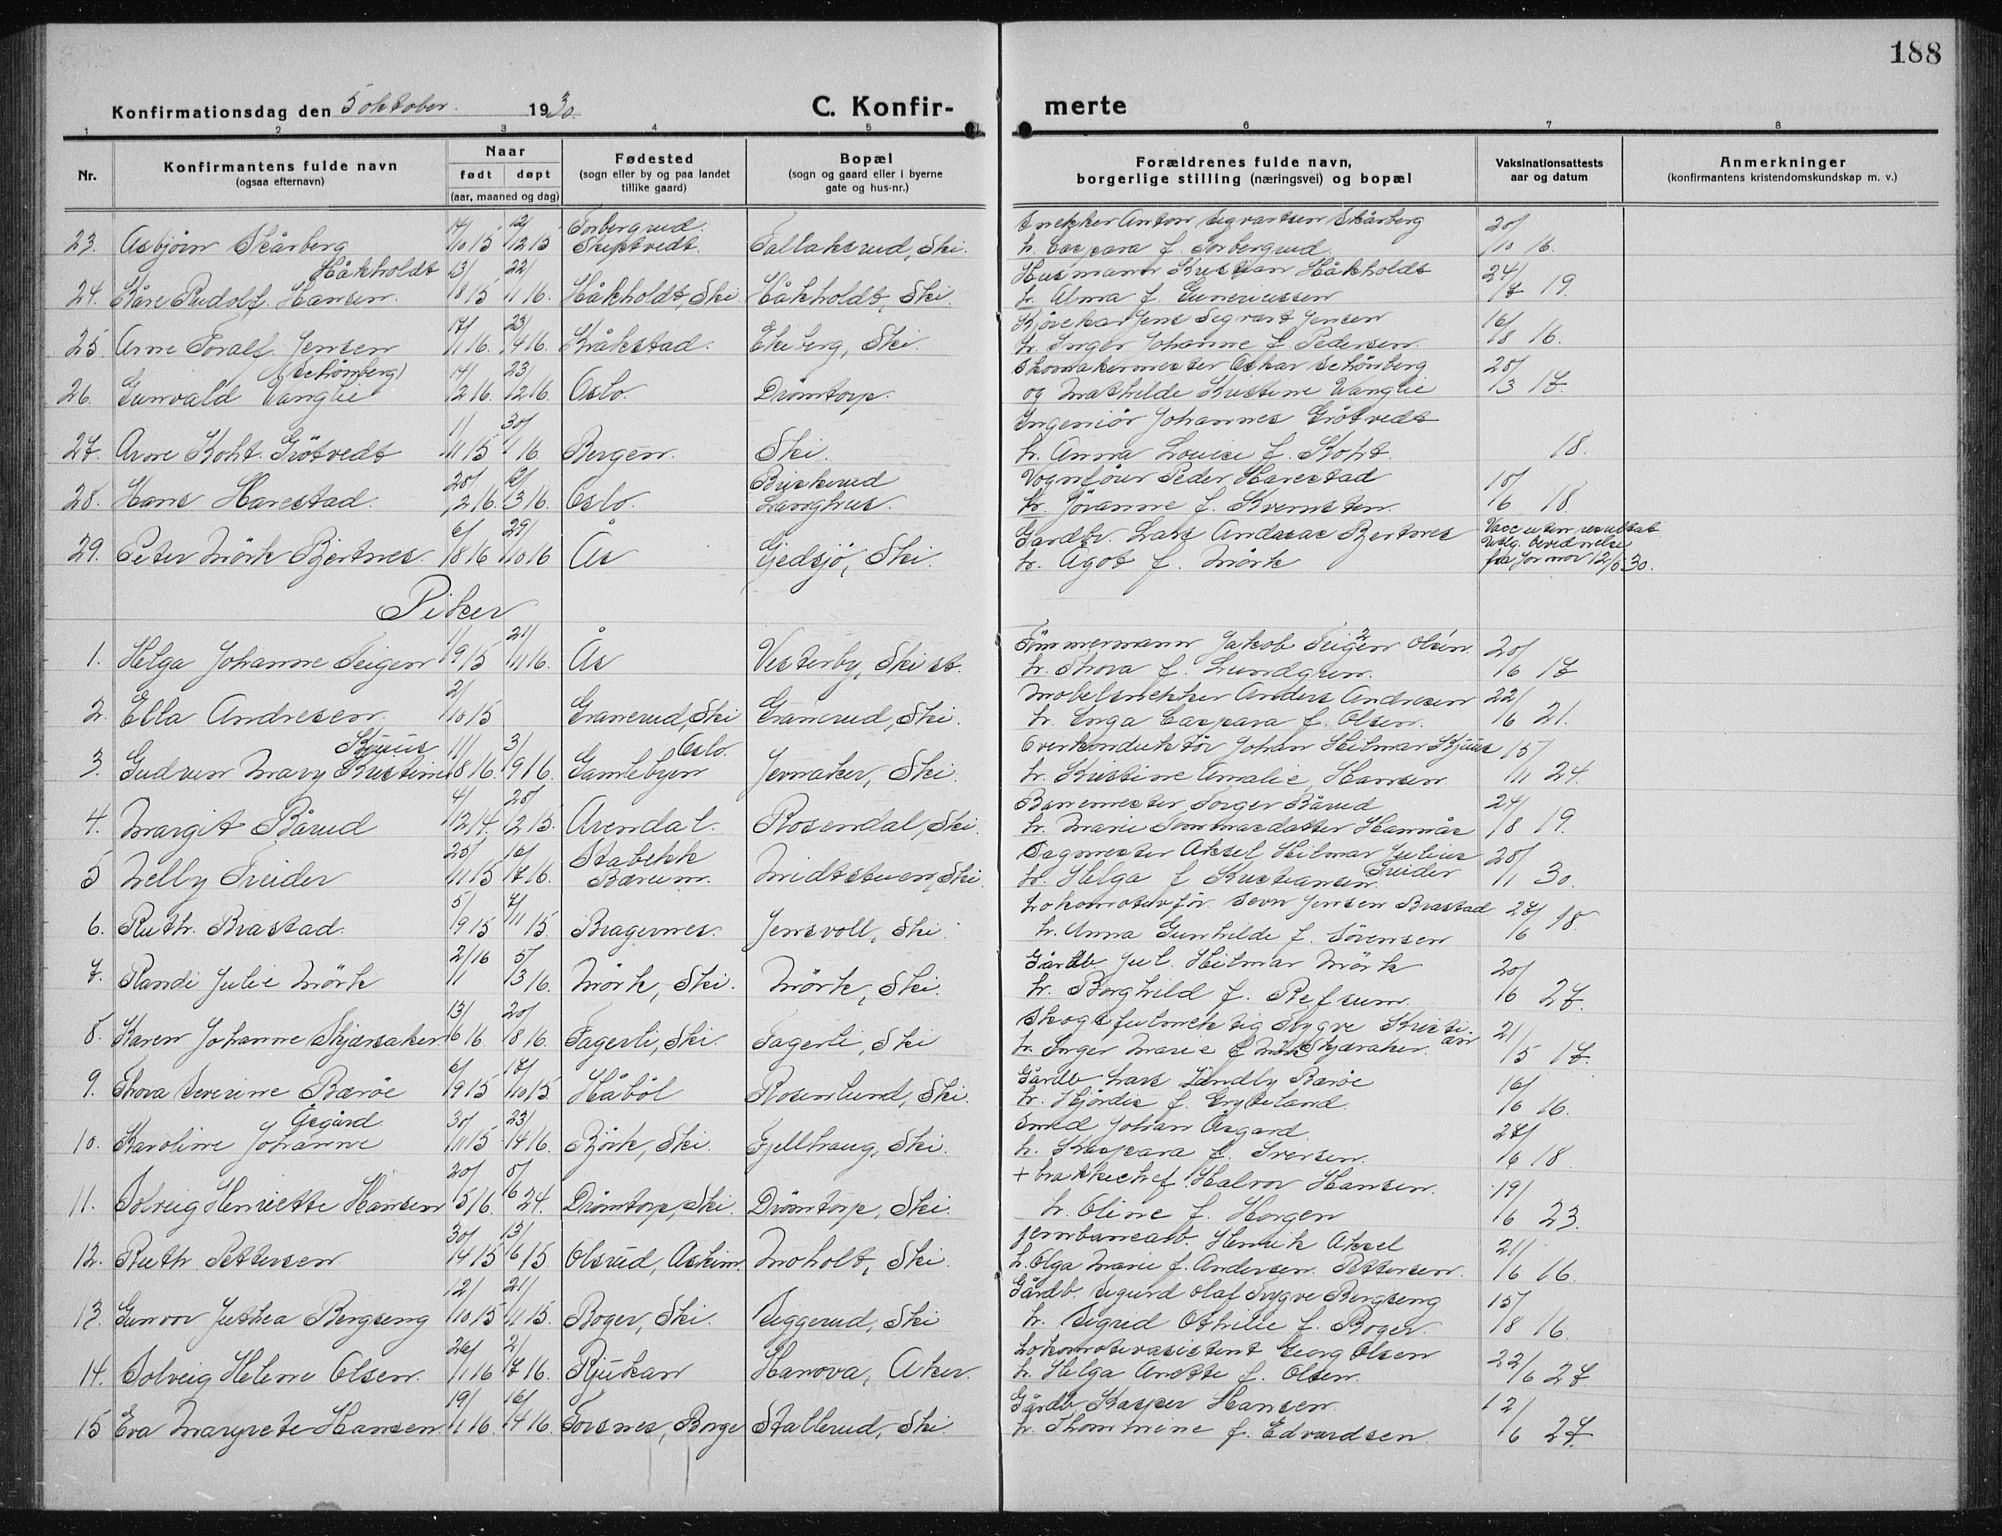 188
Konfirmationsdag den 5 oktober 1930. C. Konfir- merte
1 2 3 4 5 6 7 8
Nr. Konfirmantens fulde navn (ogsaa efternavn) Naar født døpt (aar, maaned og dag) Fødested (sogn eller by og paa landet tillike gaard) Bopæl (sogn og gaard eller i byerne gate og hus-nr.) Forældrenes fulde navn, borgerlige stilling (næringsvei) og bopæl Vaksinationsattests aar og datum Anmerkninger (konfirmantens kristendomskundskap m. v.)
23. Asbjörn Skårberg 14/10 15 12/12 15 Torbergrud. Tallaksrud, Ski. Snekker Anton Sigvartsen Skårberg 20/10 16.
h. Caspara f. Torbergrud
24. Kåre Rudolf Hansen Håkholdt 13/8 15 22/1 16. Håkholdt, Ski Håkholdt, Ski. Husmann Kristian Håkholdt 24/7 19.
h. Alma f. Gunerussen
25. Arne Toralf Jensen 17/1 16. 23/4 16. Kråkstad. Ekeberg, Ski. Kjörekar Jens Sigvart Jensen 16/8 16.
h. Inger Johanne f. Pedersen.
26. Gunvald Vanglie (Schönberg) 14/2 16. 23/12 16. Oslo. Drömtorp. Skomakermester Oskar Schönberg 20/3 17.
og Mathilde Kristine Vanglie
27. Arne Koht Grötvedt 1/11 15 30/1 16 Bergen. Ski. Ingeniör Johannes Grötvedt
h. Anna Louise f. Koht. 18.
28. Hans Harestad. 20/2 16. 6/3 16. Oslo. Buskerud Langhus. Vognförer Peder Harestad 10/6 18.
h. Jöranne f. Kvernsten.
29. Peter Mörk Bjertnes. 6/8 16 29/10 16 Ås Gjedsjö, Ski. Gardbr. Lars Andreas Bjertnes Vacc uten resultat
h. Agot f. Mörk
Piker
1. Helga Johanne Teigen 1/9 15 21/11 16. Ås Vesterby, Ski st. Tömmermann Jakob Teigen Olsen. 20/6 17
h. Thora f. Lundgren.
2. Ella Andresen. 2/10 15 Granerud, Ski Granerud, Ski. Möbelsnekker Anders Andresen 22/6 21.
h. Inga Caspara f. Olsen.
3. Gudrun Mary Kristine Skjuus 11/8 16. 3/9 16. Gamlebyen Oslo. Jernaker, Ski. Overkonduktör Johan Hilmar Skjuus 15/11 24.
h. Kristine Amalie, Hansen.
4. Margit Bårud 4/12 14. 28/2 15. Arendal. Rosendal, Ski. Banemester Torger Bårud 24/8 19.
h. Marie Tommasdatter Hamnås
5 Nelly Treider 25/11 15 16/7 16. Stabekk Bærum. Midtstuen, Ski. Sagmester Aksel Hilmar Julius Treider 20/1 30.
h. Helga f Kristiansen
6. Ruth Brastad. 5/9 15 7/11 15. Bragernes. Jensvoll, Ski. Lokomotivför. Sevn Jensen Brastad 27/6 18.
h. Anna Gunhilde f. Sörensen
7. Randi Julie Mörk 2/16 1 5/3 16. Mörk, Ski. Mörk, Ski. Gårdb. Jul. Hilmar Mörk 20/6 27.
h. Borghild f. Refsum.
8. Karen Johanne Skjærsaker 13/6 16 20/8 16. Fagerli, Ski. Fagerli, Ski Skogsfulmektig Trygve Kristian 21/5 17.
h. Inger Marie f. Mörk Skjæraker.
9. Thora Severine Baröe 6/9 15 17/10 15. Håböl Rosenlund, Ski. Gårdb Lars Lindby Baröe 16/6 16.
h. Hjördis f. Gryteland.
10. Karoline Johanne Åsgård 30/11 15 23/4 16. Björk, Ski. Fjellhaug, Ski. Smed Johan Åsgard. 27/6 18.
h. Kaspara f. Iversen.
11. Solveig Henriette Hansen 20/5 16. 5/6 24. Drömtorp, Ski. Drömtorp, Ski. + brakkechef Halvor Hansen. 19/6 23.
h. Oline f. Horgen
12. Ruth Pettersen 30/4 15 13/6 15. Olsrud, Askim. Moholt, Ski. Jernbanearb. Henrik Aksel 21/6 16.
h. Olga Marie f. Andersen. Pettersen.
13. Gunvor Juthea Bergseng 12/10 15 21/11 15. Boger, Ski. Siggerud, Ski Gårdb. Sigurd Olaf Trygve Bergseng 15/8 16.
h. Sigrid Othilie f. Boger.
14. Solveig Helene Olsen. 26/1 16 2/7 16. Rjukan Hanova, Aker. Lokomotivasistent Georg Olsen 22/6 27
h. Helga Anette f. Olsen.
15 Eva Margrete Hansen. 19/1 16. 16/4 16. Torsnes, Borge Stallerud, Ski. Gårdb. Kasper Hansen. 12/6 27.
h. Thommine f. Edvardsen.